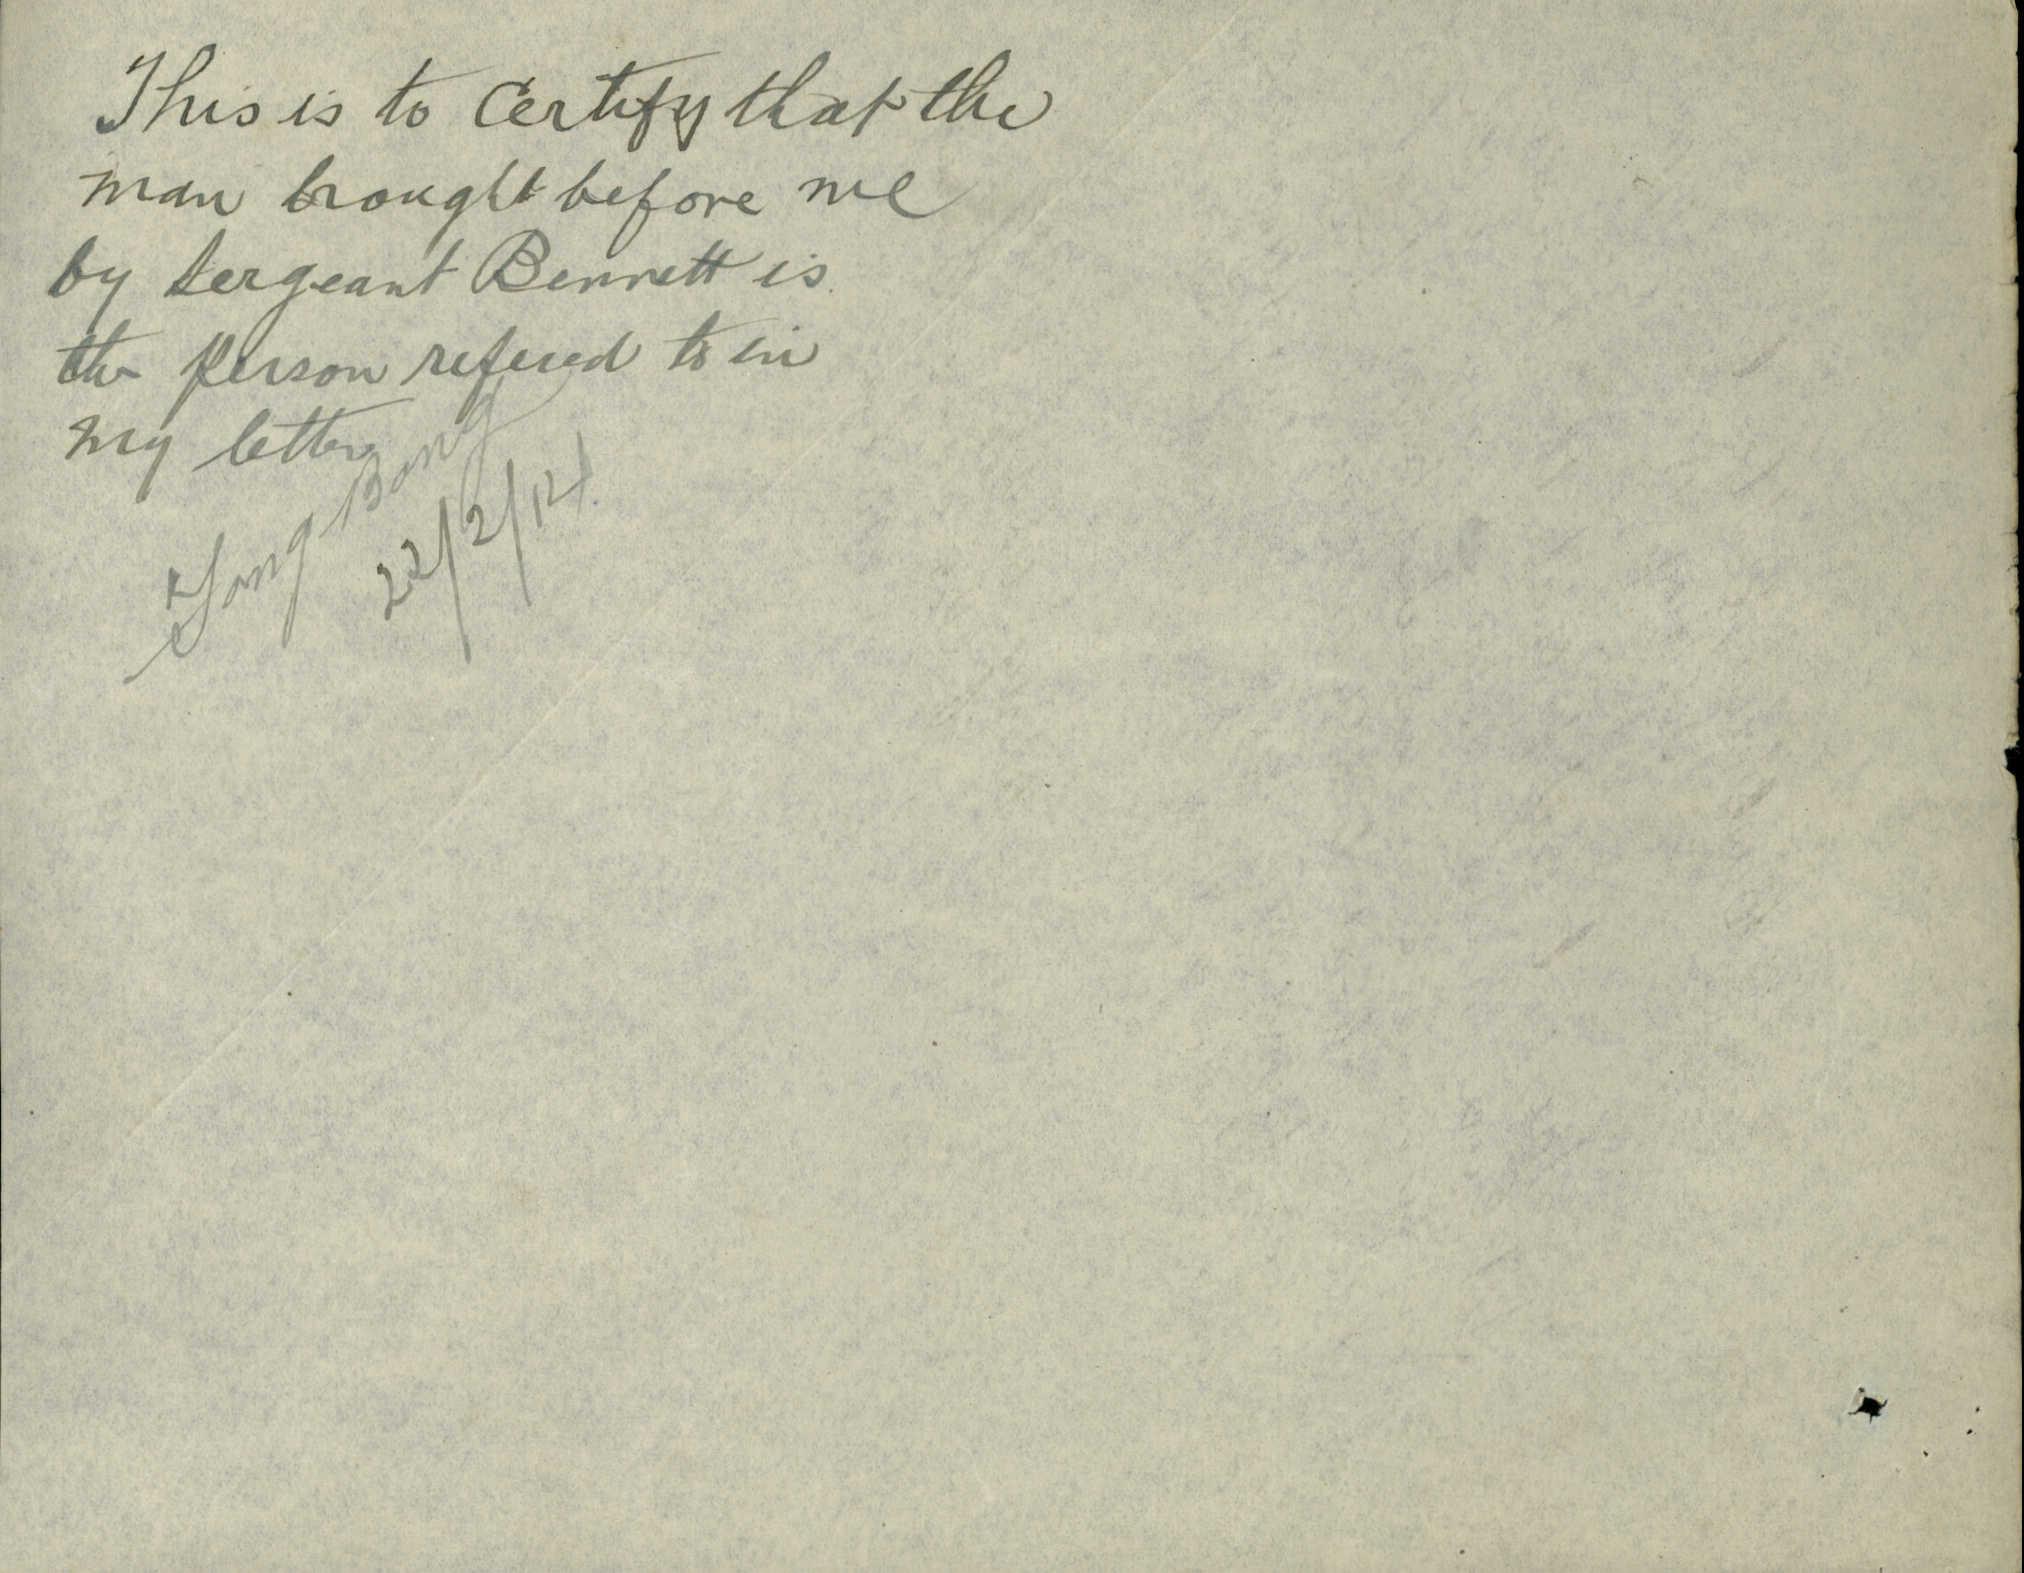 This is to Certify that the
man brought before me
by Sergeant Bennett is
the person refered to in
my letter
Bong
22/2/12